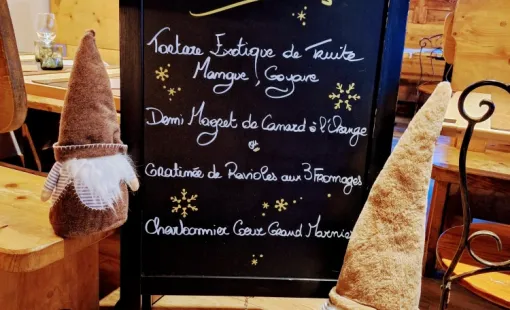 Tartare Exotique de Truite
Mangue, Goyave
Demi Magret de Canard à l'Orange
et
Gratinée de Ravioles aux 3 Fromages
Charbonnier Cœur Grand Marnier